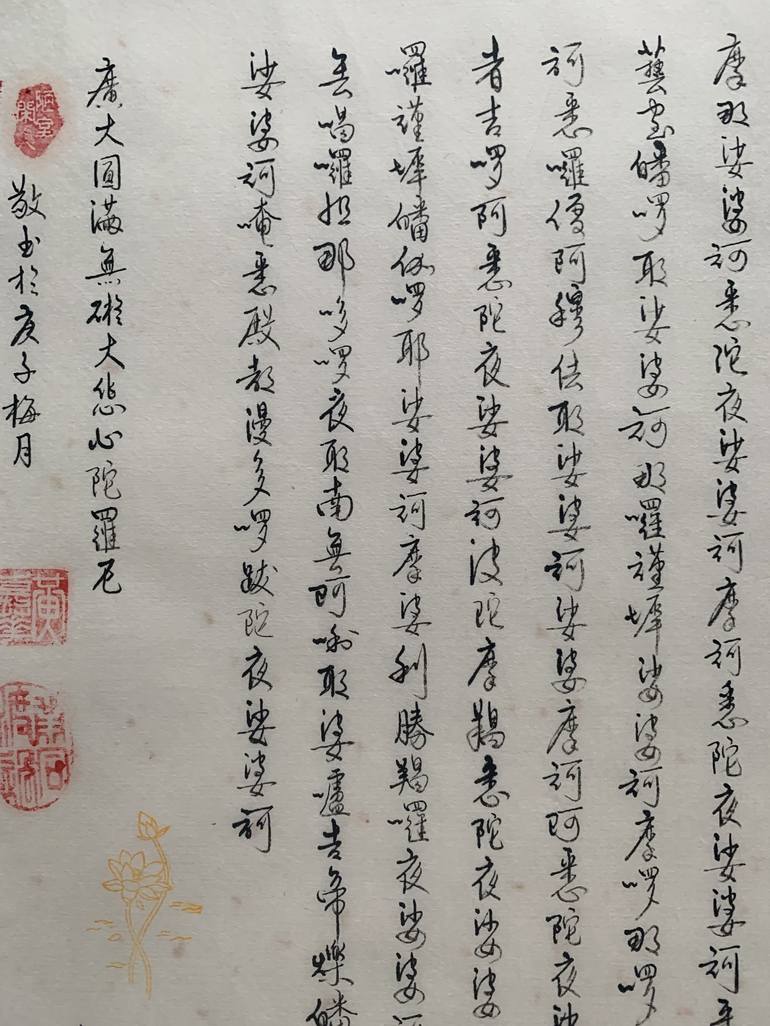 摩那娑婆訶悉陀夜娑婆訶摩訶悉陀夜娑婆訶
藝室皤啰耶娑婆訶那囉謹墀娑婆訶摩啰那啰
訶悉囉僧阿穆佉耶娑婆訶娑婆摩訶阿悉陀夜娑
者吉啰阿悉陀夜娑婆訶波陀摩羯悉陀夜娑婆
囉謹墀皤伽啰耶娑婆訶摩婆利勝羯囉夜娑婆訶
無喝囉怛那哆啰夜耶南無阿唎耶婆嚧吉帝爍皤
娑婆訶唵悉殿都漫多啰跋陀夜娑婆訶
廣大圓滿無礙大悲心陀羅尼
敬书於庚子梅月